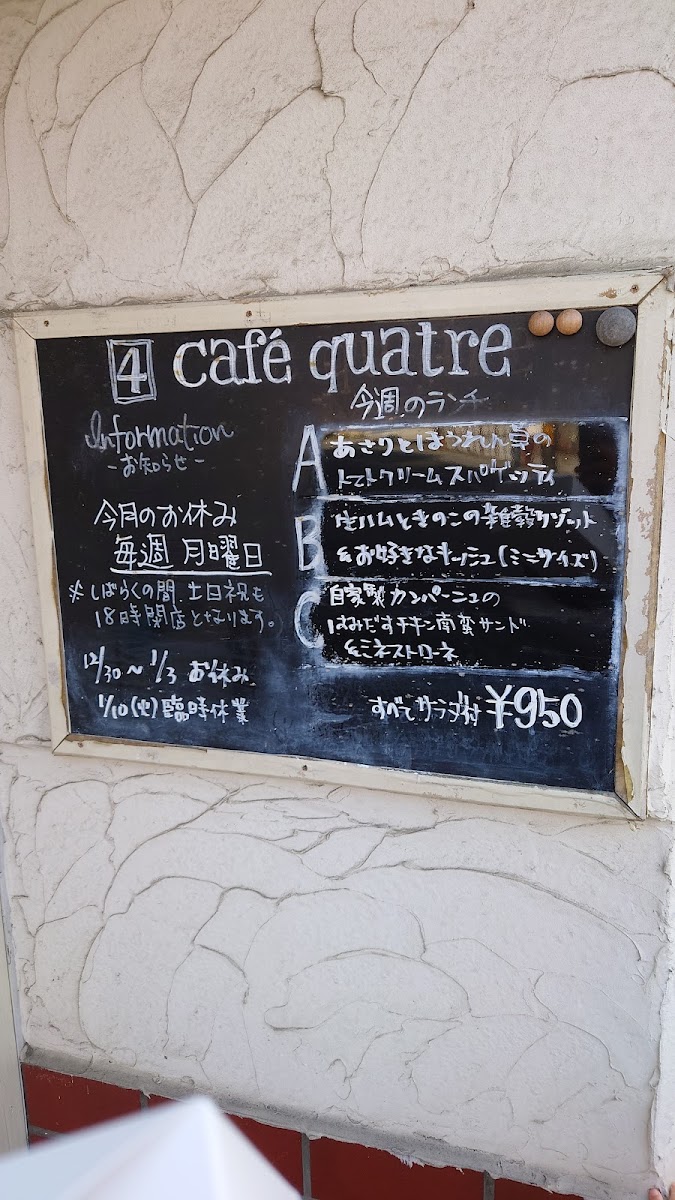 4 café quatre
Information
-お知らせ-
今月のお休み
毎週 月曜日
※しばらくの間、土日祝も
18時閉店となります。
12/30〜1/3 お休み
1/10(火)臨時休業
今週のランチ
A あさりとほうれん草の
トマトクリームスパゲッティ
B 生ハムときのこの雑穀リゾット
&お好きなキッシュ(ミニサイズ)
C 自家製カンパーニュの
はみだすチキン南蛮サンド
&ミネストローネ
すべてサラダ付 ¥950